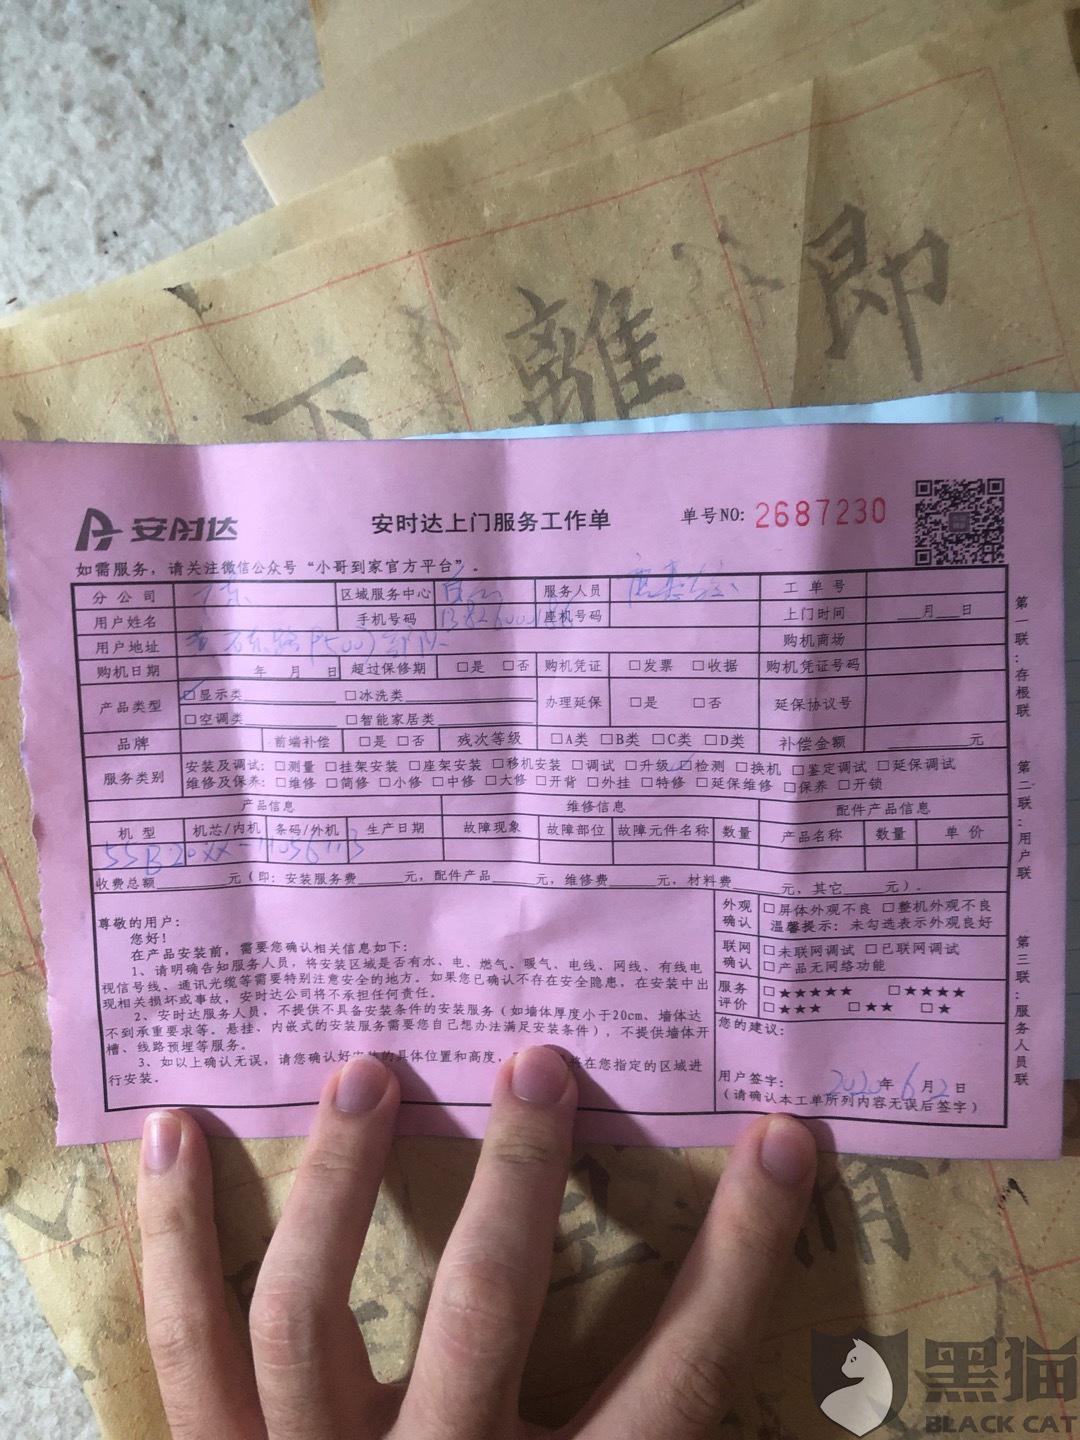 即
離
不
安时达 安时达上门服务工作单 单号NO: 2687230
如需服务，请关注微信公众号“小哥到家官方平台”。
分公司 广东 区域服务中心 服务人员 工单号
用户姓名 手机号码 座机号码 上门时间 月 日
用户地址 购机商场
购机日期 年 月 日 超过保修期 □是 □否 购机凭证 □发票 □收据 购机凭证号码
产品类型 □显示类 □冰洗类 办理延保 □是 □否 延保协议号
□空调类 □智能家居类
品牌 前端补偿 □是 □否 残次等级 □A类 □B类 □C类 □D类 补偿金额 元
服务类别 安装及调试：□测量 □挂架安装 □座架安装 □移机安装 □调试 □升级 □检测 □换机 □鉴定调试 □延保调试
维修及保养：□维修 □简修 □小修 □中修 □大修 □开背 □外挂 □特修 □延保维修 □保养 □开锁
产品信息 维修信息 配件产品信息
机型 机芯/内机 条码/外机 生产日期 故障现象 故障部位 故障元件名称 数量 产品名称 数量 单价
收费总额 元（即：安装服务费 元，配件产品 元，维修费 元，材料费 元，其它 元）。
尊敬的用户：
您好！
在产品安装前，需要您确认相关信息如下：
1、请明确告知服务人员，将安装区域是否有水、电、燃气、暖气、电线、网线、有线电
视信号线、通讯光缆等需要特别注意安全的地方。如果您已确认不存在安全隐患，在安装中出
现相关损坏或事故，安时达公司将不承担任何责任。
2、安时达服务人员，不提供不具备安装条件的安装服务（如墙体厚度小于20cm、墙体达
不到承重要求等。悬挂、内嵌式的安装服务需要您自己想办法满足安装条件），不提供墙体开
槽、线路预埋等服务。
3、如以上确认无误，请您确认好安装的具体位置和高度，将在您指定的区域进
行安装。
外观确认 □屏体外观不良 □整机外观不良
温馨提示：未勾选表示外观良好
联网确认 □未联网调试 □已联网调试
□产品无网络功能
服务评价 □★★★★★ □★★★★
□★★★ □★★ □★
您的建议：
用户签字： 2020年6月2日
（请确认本工单所列内容无误后签字）
第一联：存根联
第二联：用户联
第三联：服务人员联
黑猫
BLACK CAT